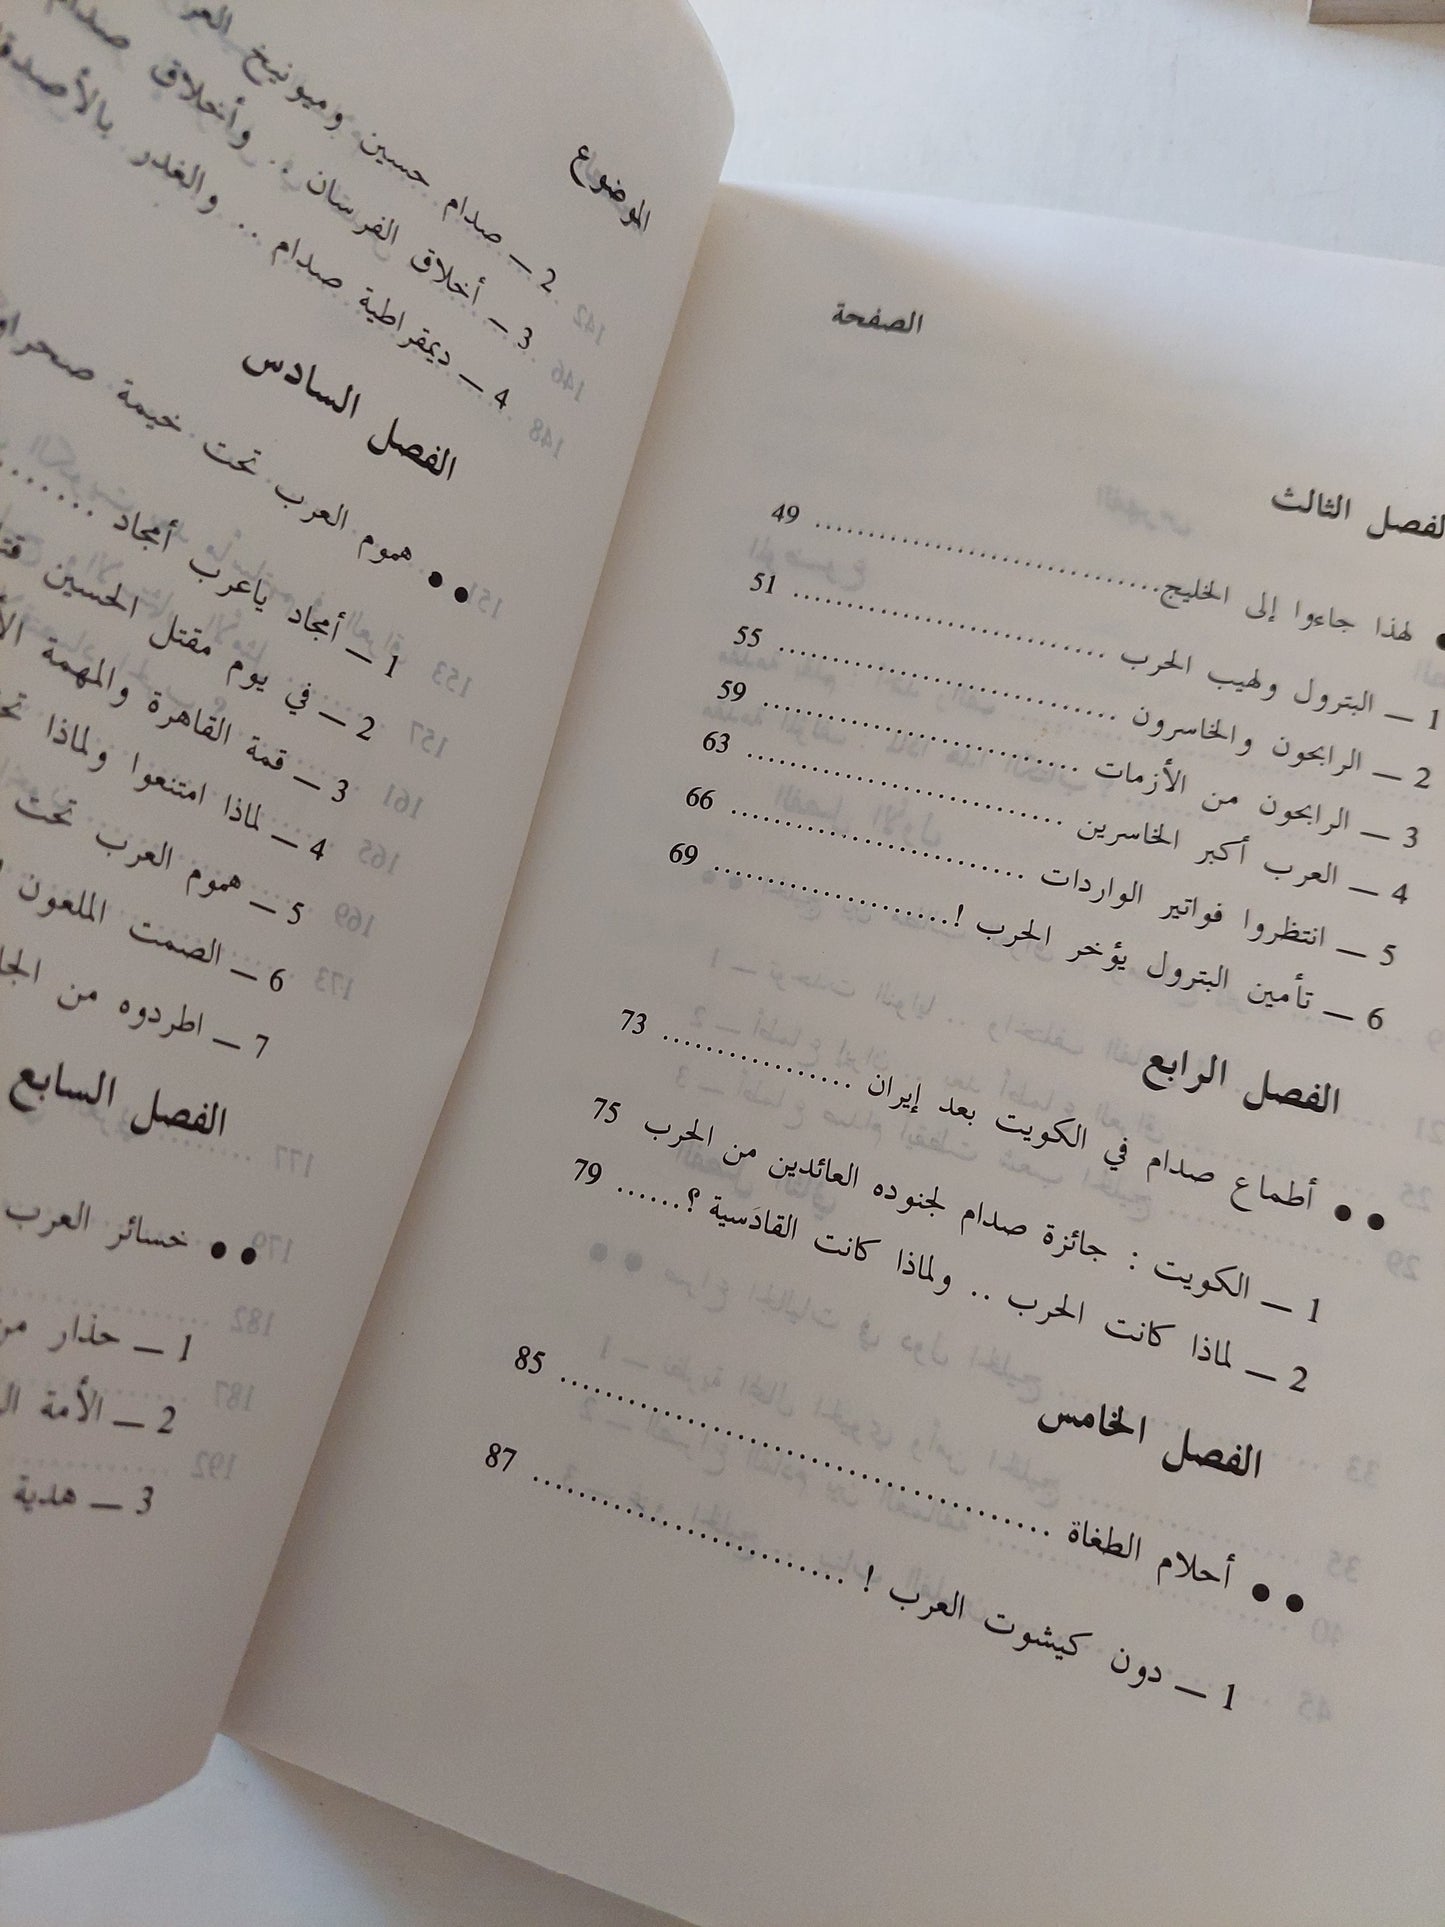 الصفحة
الفصل الثالث
● لهذا جاءوا إلى الخليج .......... 49
1 — البترول ولهيب الحرب .......... 51
2 — الرابحون والخاسرون .......... 55
3 — الرابحون من الأزمات .......... 59
4 — العرب أكبر الخاسرين .......... 63
5 — انتظروا فواتير الواردات .......... 66
6 — تأمين البترول يؤخر الحرب ! .......... 69
الفصل الرابع
●● أطماع صدام في الكويت بعد إيران .......... 73
1 — الكويت : جائزة صدام لجنوده العائدين من الحرب 75
2 — لماذا كانت الحرب .. ولماذا كانت القادَسية ؟ ...... 79
الفصل الخامس
●● أحلام الطغاة .......... 85
1 — دون كيشوت العرب ! .......... 87
الموضوع
2 — صدام حسين وميونيخ
3 — أخلاق الفرسان .. وأخلاق صدام
4 — ديمقراطية صدام .. والغدر
الفصل السادس
●● هموم العرب تحت خيمة
1 — أمجاد ياعرب أمجاد ........
2 — في يوم مقتل الحسين
3 — قمة القاهرة والمهمة
4 — لماذا امتنعوا ولماذا
5 — هموم العرب تحت
6 — الصمت الملعون
7 — اطردوه من
الفصل السابع
●● خسائر العرب
1 — حذار من
2 — الأمة
3 — هدية